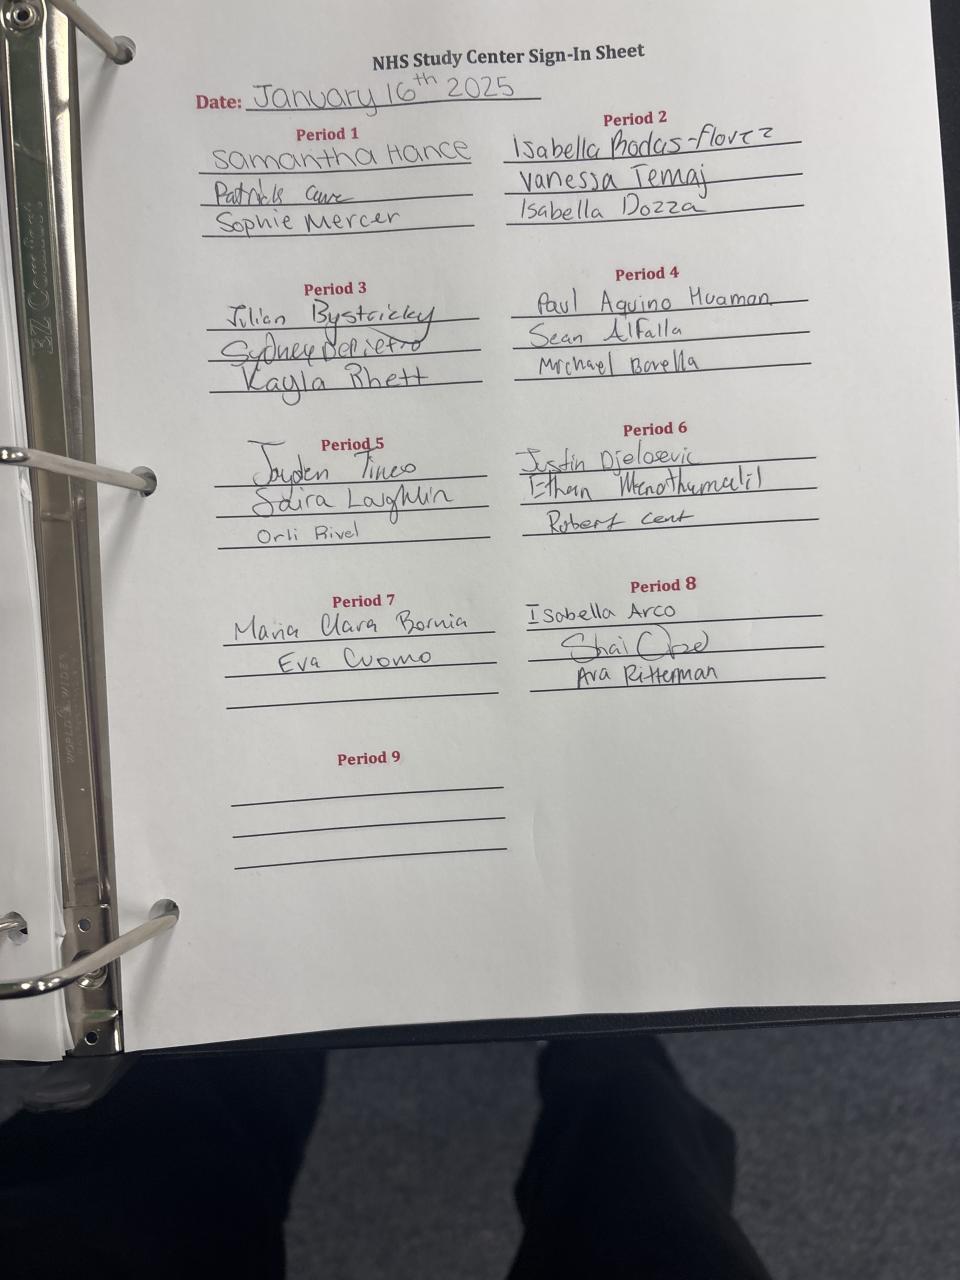 NHS Study Center Sign-In Sheet
Date: January 16th 2025
Period 1
Samantha Hance
Patrick
Sophie Mercer
Period 2
Isabella Rodas-Florez
Vanessa Temaj
Isabella Dozza
Period 3
Julian Bystricky
Sydney DePietro
Kayla Rhett
Period 4
Paul Aquino Huaman
Sean Alfalla
Michael Borella
Period 5
Jayden Tineo
Saira Laughlin
Orli Rivel
Period 6
Justin Djelosevic
Ethan
Robert Cent
Period 7
Maria Clara Bornia
Eva Cuomo
Period 8
Isabella Arco
Shai
Ava Ritterman
Period 9